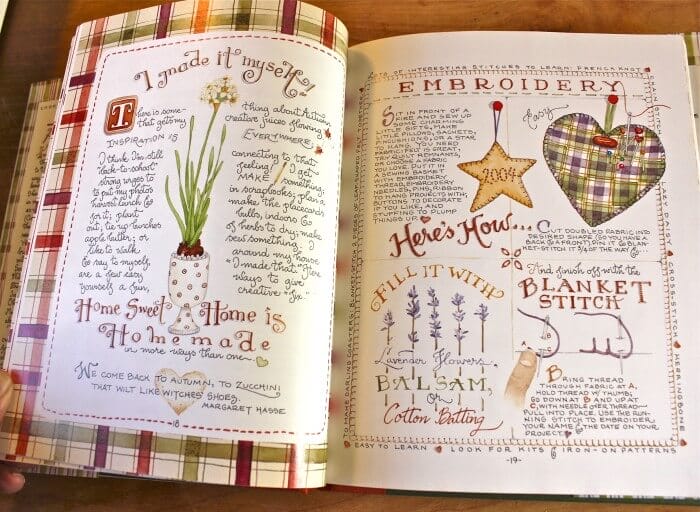 I made it myself!
There is some-
that gets my
INSPIRATION IS
I think I'm still
back-to-school
strong urges to
to put my photos
harvest lunch &
for it; plant
out; tie up bunches
apple butter; or
like to walk
& say to myself,
are a few easy
yourself a fun,
thing about Autumn
creative juices flowing
EVERYWHERE;
connecting to that
feeling! I
MAKE something;
in scrapbooks; plan a
make the placecards
bulbs, indoors &
of herbs to dry; make
sew something;
around my house
"I made that." Here
ways to give
creative "fix."
Home Sweet Home is
Homemade
in more ways than one
WE COME BACK TO AUTUMN, TO ZUCCHINI
THAT WILT LIKE WITCHES' SHOES.
MARGARET HASSE
-18-
LOTS OF INTERESTING STITCHES TO LEARN: FRENCH KNOT
EMBROIDERY
SIT IN FRONT OF A
FIRE AND SEW UP
SOME CHARMING
LITTLE GIFTS. MAKE
LITTLE PILLOWS, SACHETS,
PINCUSHIONS, OR A STAR
TO HANG. YOU NEED
FABRIC (FELT IS GREAT;
TRY QUILT REMNANTS,
OR CHOOSE A FABRIC
YOU LOVE. PUT IT IN
A SEWING BASKET
WITH EMBROIDERY
THREAD, EMBROIDERY
NEEDLES, PINS, RIBBON
TO HANG PROJECTS WITH,
BUTTONS TO DECORATE
IF YOU LIKE, AND
STUFFING TO PLUMP
THINGS UP.
2004
Easy
Here's How...
CUT DOUBLED FABRIC INTO
DESIRED SHAPE (SO YOU HAVE A
BACK & A FRONT), PIN IT & BLAN-
KET-STITCH IT 3/4 OF THE WAY &...
FILL IT WITH
Lavender Flowers,
BALSAM,
or
Cotton Batting
And finish off with the
BLANKET
STITCH
A
B
C
BRING THREAD
THROUGH FABRIC AT A,
HOLD THREAD W/ THUMB,
GO DOWN AT B AND UP AT
C, WITH NEEDLE OVER THREAD—
PULL INTO PLACE. USE THE RUN-
NING STITCH TO EMBROIDER
YOUR NAME & THE DATE ON YOUR
PROJECT.
HERRINGBONE
TO MAKE DARLING COASTERS, BLANKET
EASY TO LEARN LOOK FOR KITS & IRON-ON PATTERNS
-19-